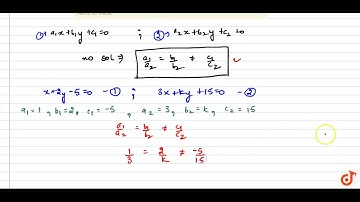 ① a₁x+b₁y+c₁=0 ; ② a₂x+b₂y+c₂=0
no solⁿ ⇒ a₁/a₂ = b₁/b₂ ≠ c₁/c₂ ✓
x+2y-5=0 -① ; 3x+ky+15=0 -②
a₁=1, b₁=2, c₁=-5, a₂=3, b₂=k, c₂=15
a₁/a₂ = b₁/b₂ ≠ c₁/c₂
1/3 = 2/k ≠ -5/15